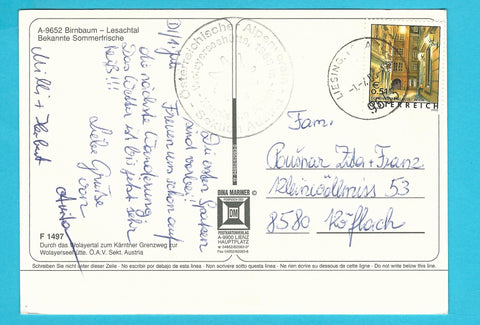 A-9652 Birnbaum – Lesachtal
Bekannte Sommerfrische
Die ersten
sind vorbei!
Freuen uns schon auf
die nächste Wanderung.
Das Wetter ist bis jetzt sehr
heiß!!!
Liebe Grüße
von
Milli + Herbert
F 1497
Durch das Wolayertal zum Kärntner Grenzweg zur
Wolayerseehütte. Ö.A.V. Sekt. Austria
Österreichischer Alpenverein
DINA MARINER ©
DM
POSTKARTENVERLAG
A-9900 LIENZ
HAUPTPLATZ
LIESING
€ 0,51
ÖSTERREICH
Fam.
Zita + Franz
Kleinwöllmiss 53
8580 Köflach
Schreiben Sie nicht unter dieser Zeile - No escribir por debajo de esta linea - Non scrivere sotto questa linea - Ne rien écrire au dessous de cette ligne - Do not write below this line.